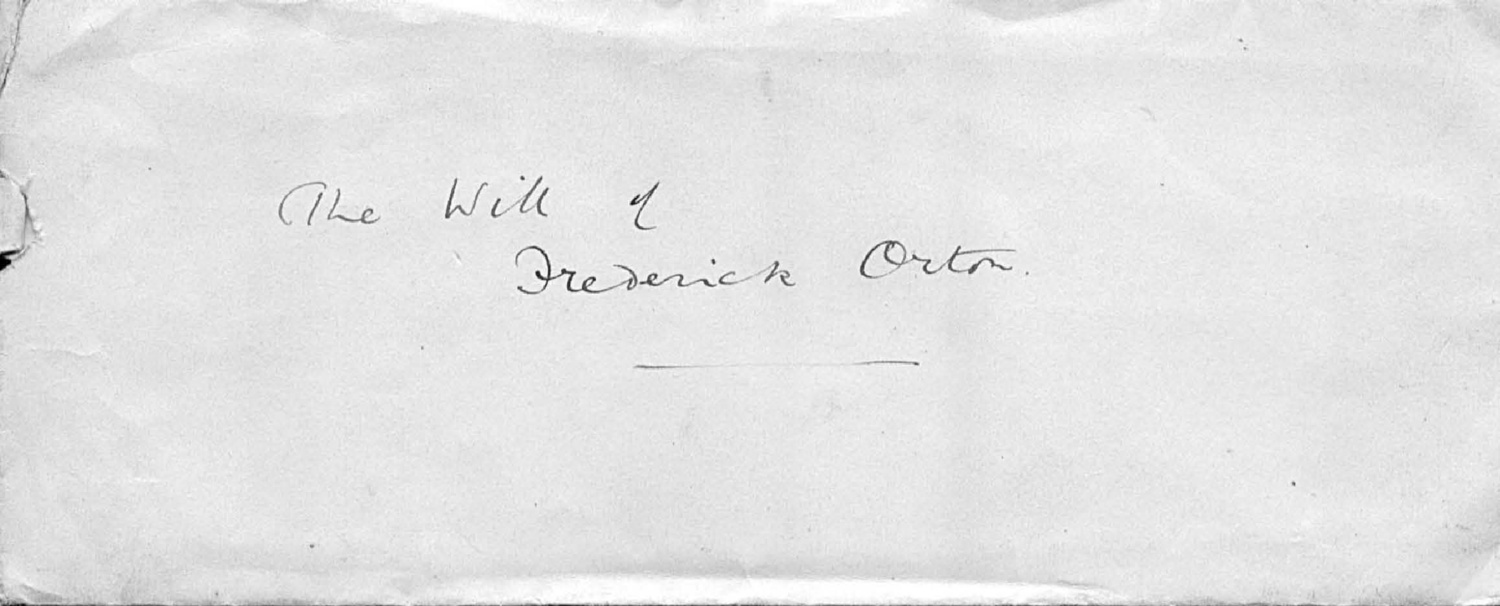 The Will of
Frederick Orton.